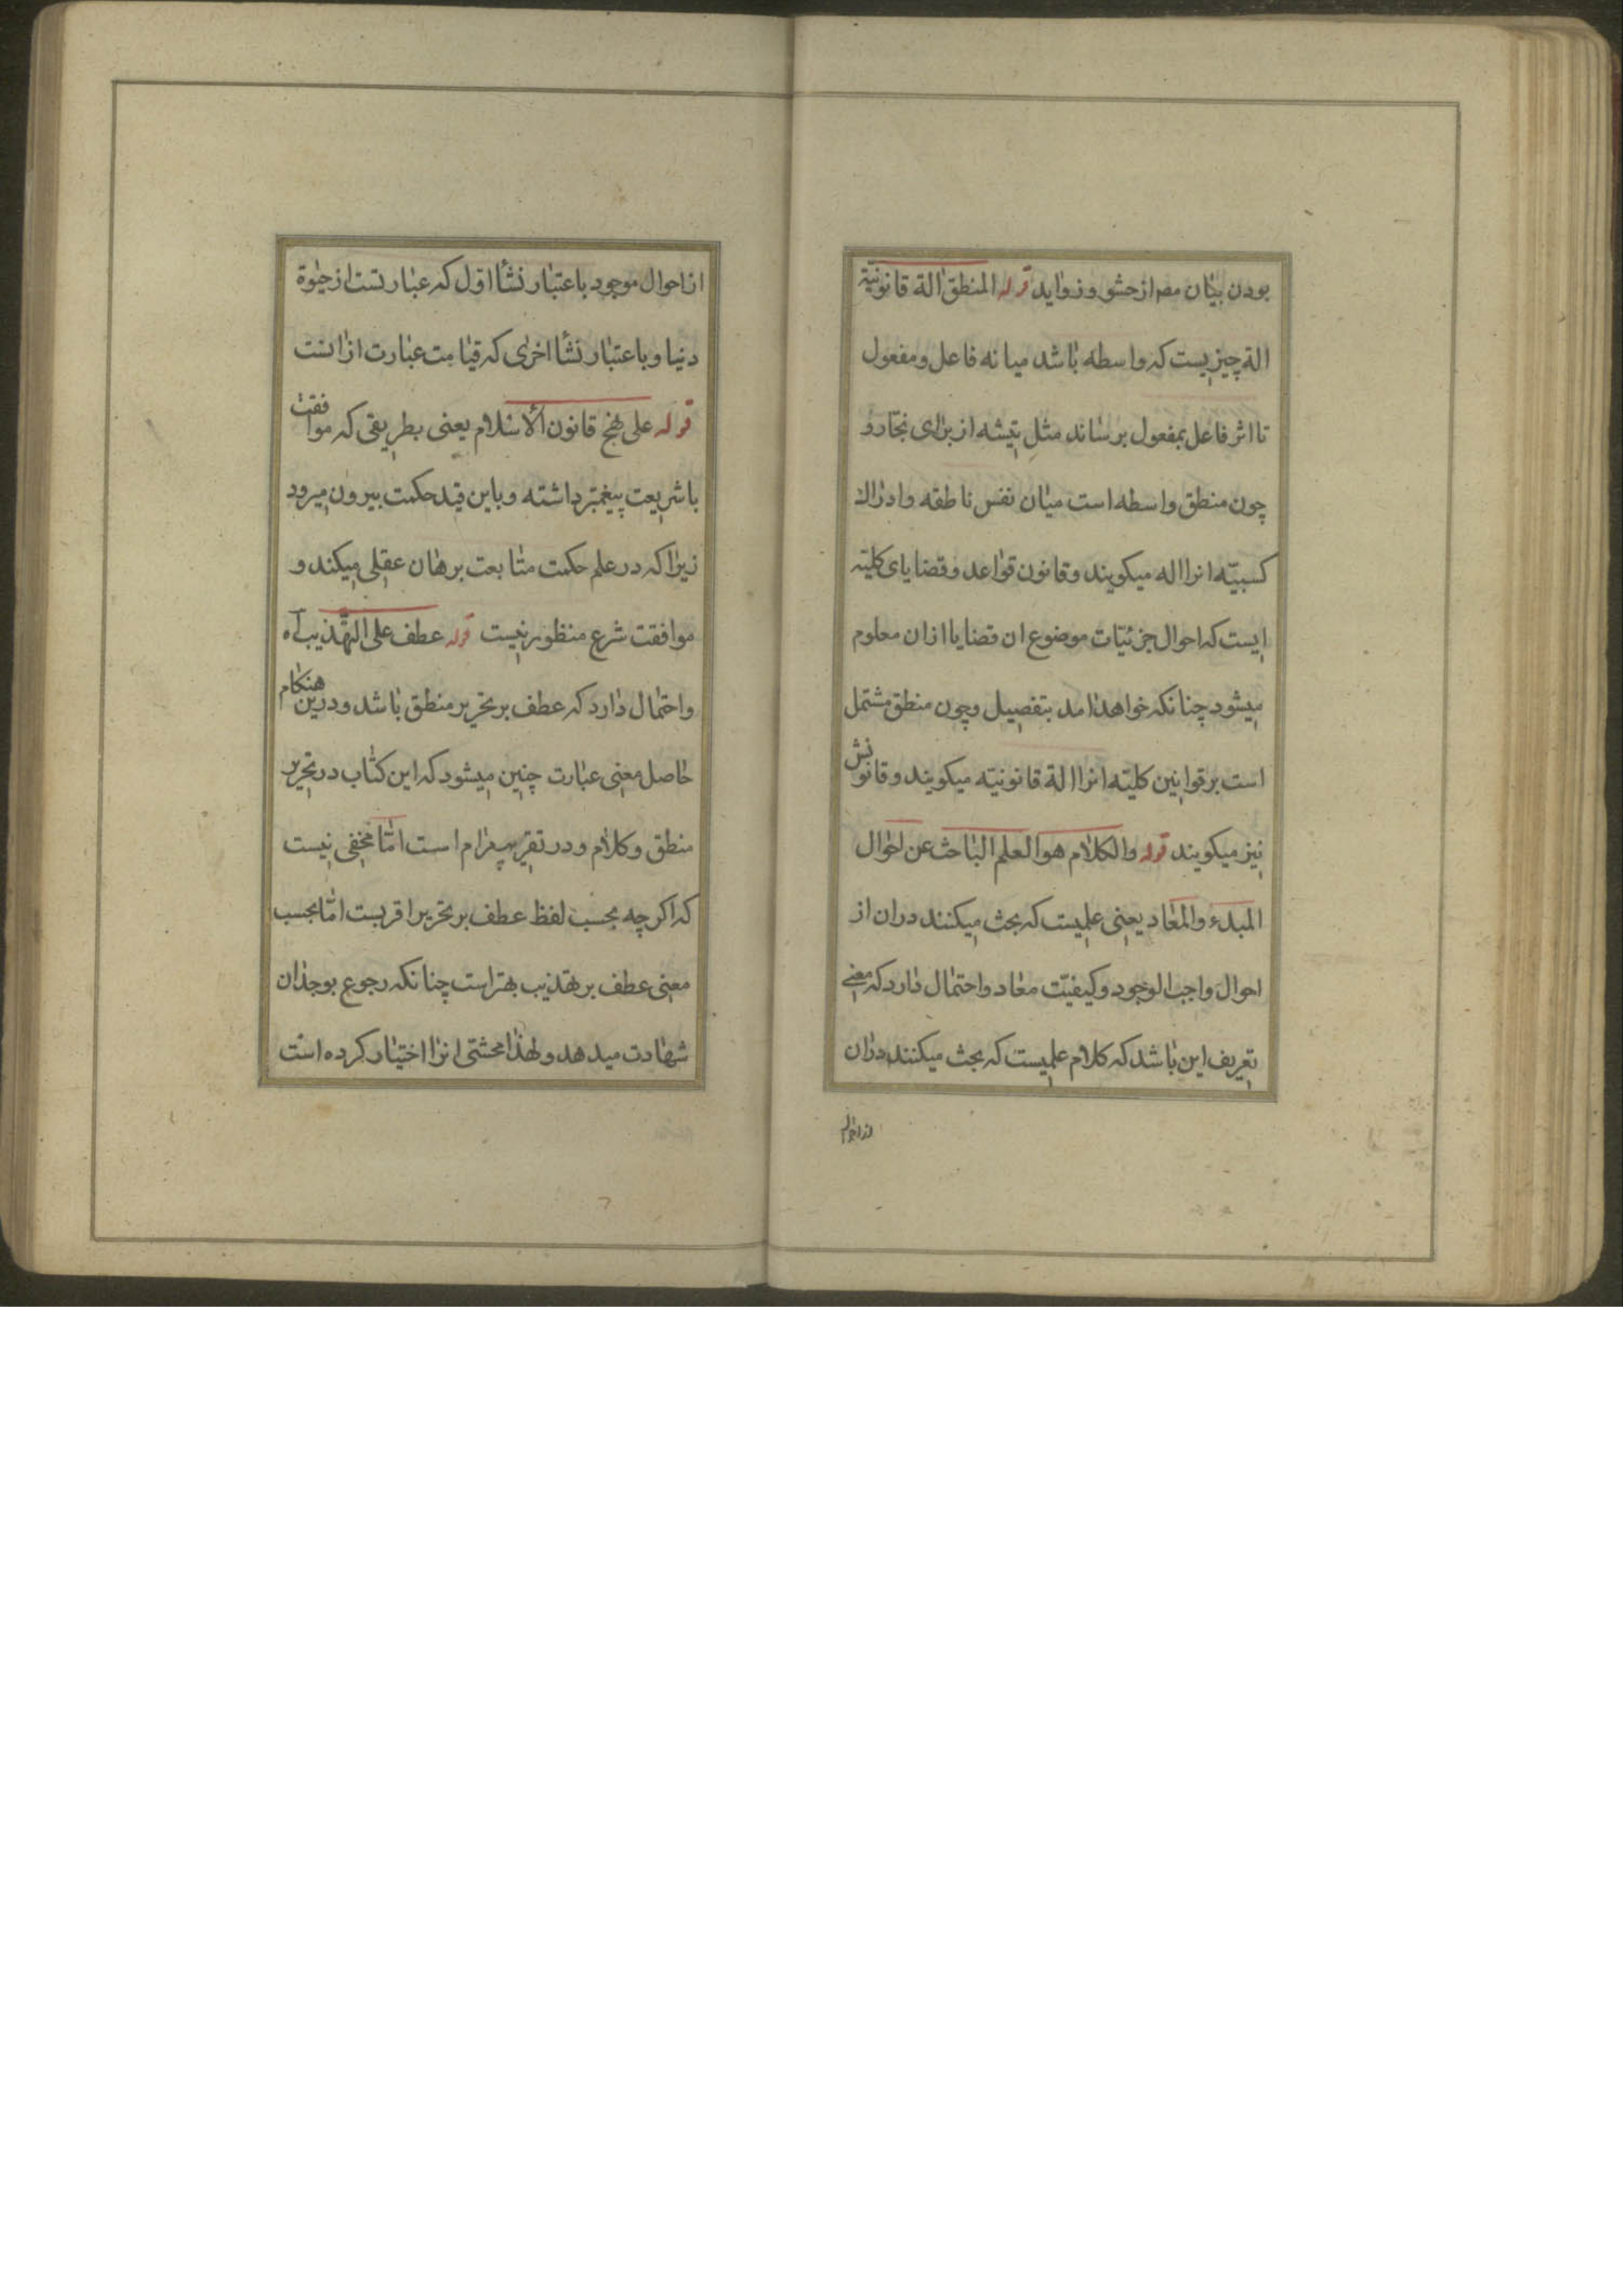 بودن بیان مصـ از حشو و زواید قوله المنطق الة قانونیّة
الة چیزیست که واسطه باشد میانه فاعل و مفعول
تا اثر فاعل بمفعول برساند مثل تیشه از برای نجار و
چون منطق واسطه است میان نفس ناطقه و ادراک
کسبیّه انرا اله میکویند و قانون قواعد و قضایای کلیّه
ایست که احوال جزئیّات موضوع ان قضایا ازان معلوم
میشود چنانکه خواهد امد بتفصیل و چون منطق مشتمل
است بر قوانین کلیّه انرا الة قانونیّه میکویند و قانونش
نیز میکویند قوله والکلام هو العلم الباحث عن احوال
المبدء والمعاد یعنی علمیست که بحث میکنند دران از
احوال واجب الوجود و کیفیّت معاد و احتمال دارد که معنی
تعریف این باشد که کلام علمیست که بحث میکنند دران
از احوال
از احوال موجود باعتبار نشأ اوّل که عبارتست از حیوة
دنیا و باعتبار نشأ اخری که قیامت عبارت ازانست
قوله علی نهج قانون الاسلام یعنی بطریقی که موافقت
با شریعت پیغمبر داشته و باین قید حکمت بیرون میرود
زیرا که در علم حکمت متابعت برهان عقلی میکند و
موافقت شرع منظور نیست قوله عطف علی التهذیب آه
و احتمال دارد که عطف بر تحریر منطق باشد و درین هنکام
حاصل معنی عبارت چنین میشود که این کتاب در تحریر
منطق و کلام و در تقریب مرام است امّا مخفی نیست
که اکرچه بحسب لفظ عطف بر تحریر اقربست امّا بحسب
معنی عطف بر تهذیب بهتر است چنانکه رجوع بوجدان
شهادت میدهد و لهذا محشّی انرا اختیار کرده است